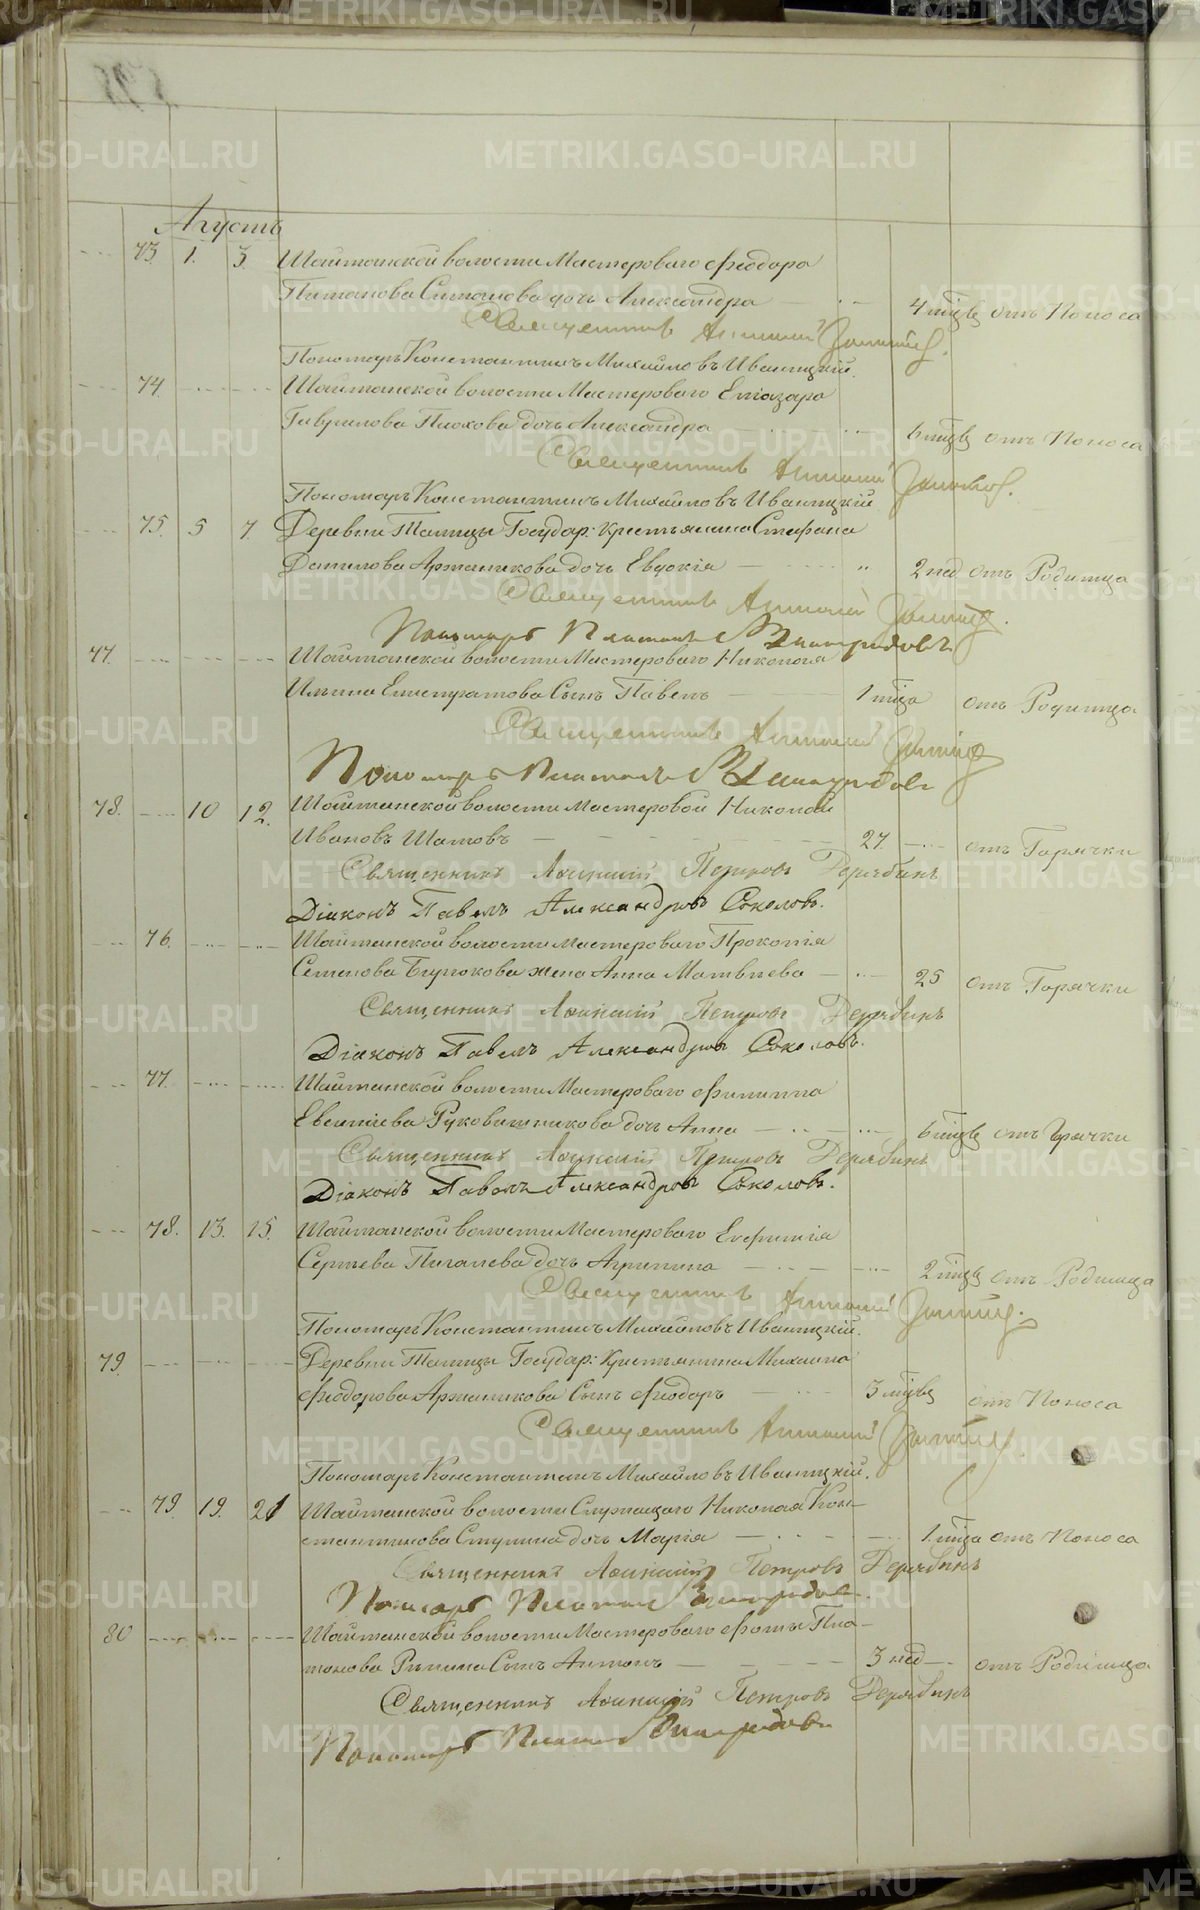 Августъ
73. 1. 3. Шайтанской волости Мастероваго Феодора
Платонова Ситонова дочь Александра 4 мцвъ отъ Поноса
Священникъ
Пономарь Константинъ Михайловъ Иваницкій.
74. Шайтанской волости Мастероваго Елiазара
Гаврилова Плохова дочь Александра 6 мцвъ отъ Поноса
Священникъ
Пономарь Константинъ Михайловъ Иваницкій
75. 5 7. Деревни Талицы Государ: Крестьянина Стефана
Данилова Аржаникова дочь Евдокія 2 нед отъ Родимца
Священникъ
Пономарь Платонъ
77. Шайтанской волости Мастероваго Николая
Ильина Елистратова Сынъ Павелъ 1 мца отъ Родимца
Священникъ
Пономарь Платонъ
78. 10 12. Шайтанской волости Мастеровой Николай
Ивановъ Шатовъ 27 отъ Горячки
Священникъ Петровъ Дерябинъ
Діаконъ Павелъ Александровъ Соколовъ.
76. Шайтанской волости Мастероваго Прокопія
Семенова Бирюкова жена Анна Матвѣева 25 отъ Горячки
Священникъ Петровъ Дерябинъ
Діаконъ Павелъ Александровъ Соколовъ.
77. Шайтанской волости Мастероваго Филиппа
Евсигнiева Рукавишникова дочь Анна 6 мцвъ отъ Грячки
Священникъ Петровъ Дерябинъ
Діаконъ Павелъ Александровъ Соколовъ.
78. 13. 15. Шайтанской волости Мастероваго Евфимія
Сергѣева Пигалева дочь Агрипина 2 мцвъ отъ Родимца
Священникъ
Пономарь Константинъ Михайловъ Иваницкій.
79. Деревни Талицы Государ: Крестьянина Михаила
Феодорова Аржаникова Сынъ Феодоръ 3 мцвъ отъ Поноса
Священникъ
Пономарь Константинъ Михайловъ Иваницкій.
79. 19. 21 Шайтанской волости Служащаго Николая Кон-
стантинова Ступина дочь Марія 1 мца отъ Поноса
Священникъ Петровъ Дерябинъ
Пономарь Платонъ
80 Шайтанской волости Мастероваго Фомы Пла-
тонова Рѣпина Сынъ Антонъ 3 нед отъ Родимца
Священникъ Петровъ Дерябинъ
Пономарь Платонъ
METRIKI.GASO-URAL.RU